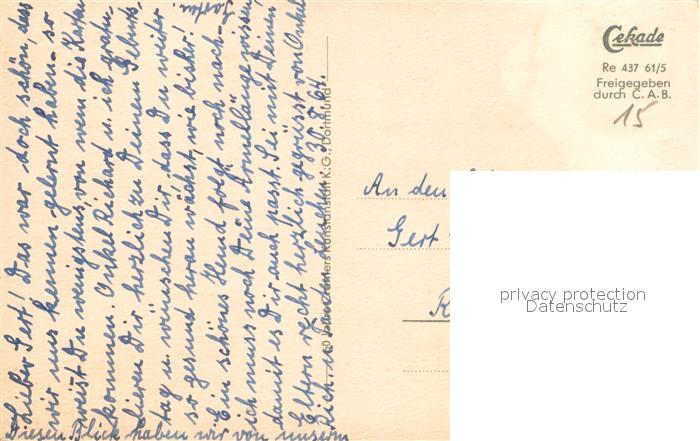 Lieber Gert! Das war doch schön, dass
wir uns kennen gelernt haben - so
weist Du wenigstens, von wem die Karten
kommen. Onkel Richard u. ich gratu-
lieren Dir herzlich zu Deinem Geburts-
tag u. wünschen Dir, dass Du weiter
so gesund heran wächst, wie bisher!
Ein schönes Hemd folgt noch nach -
ich muss noch Deine Armellänge wissen,
damit es Dir auch passt. Sei mit Deinen
Eltern recht herzlich gegrüsst von Onkel
Rich. u. Tante Lenchen 30.8.64.
Diesen Blick haben wir von unserm
Cramers Kunstanstalt K.G., Dortmund
Cekade
Re 437 61/5
Freigegeben
durch C. A. B.
15
An den
Gert
privacy protection
Datenschutz